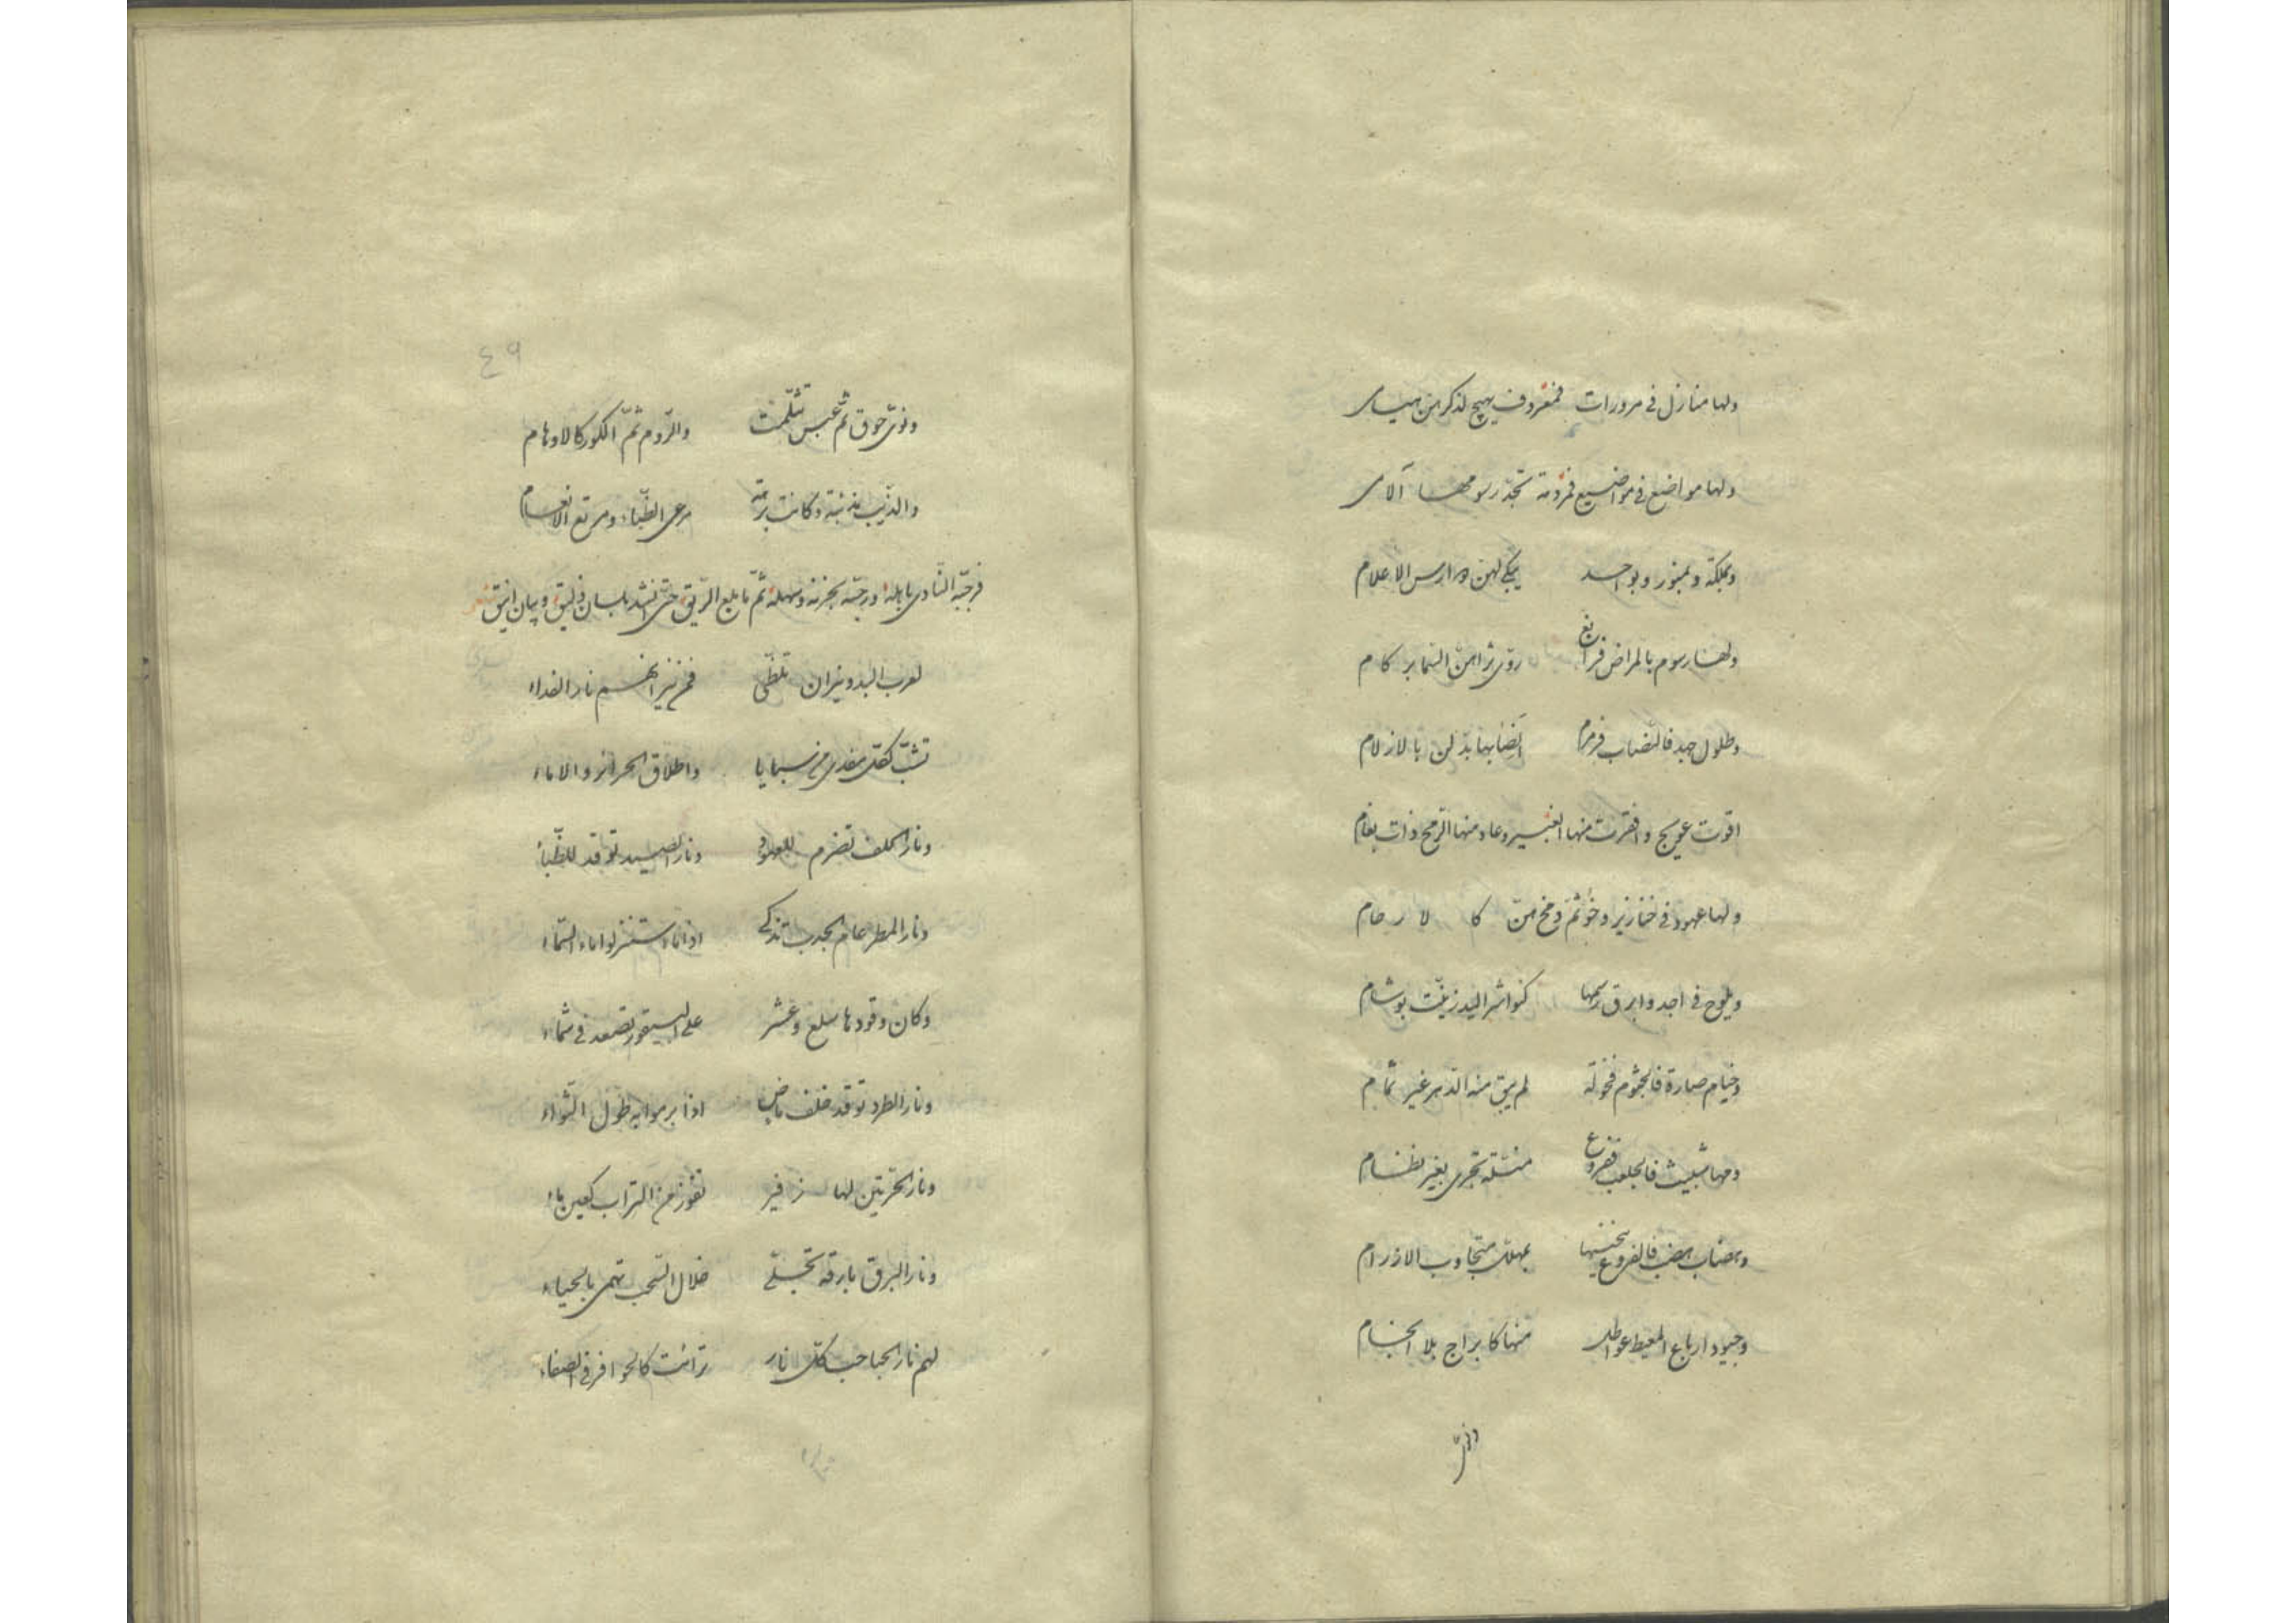 ولها منازل في مرورات فمغروف يهيج لذكرهن هيامى
ولها مواضع في مواضيع فرومة تجدّ رسومها آلامى
وبملكة وبمنور وبواحد يبكى لهن دوارس الاعلام
ولها رسوم بالمراض فرابغ روّى ثراهنّ السما بركام
وطلول جيد فالنضاب فرمرم انضابها بدّلن بالازلام
اقوت عويج واقفرت منها العنيس وعاد منها الرمح ذات بغام
ولها عهود في خنازير وخوثم ومخمن كالارحام
ويلوح في اجد وابرق رسمها كنواشر اليد زيّنت بوشام
وخيام صارة فالجثوم فخولة لم يبق منه الدهر غير ثمام
ومها شبيث فالجلعب فقروع منثلة تجرى بغير نظام
وهضاب هضب فالفروع بخنسها يهلك متجاوب الارزام
وجيود ارباع المعيط عواطل منها كابراج بلا انجام
ونوىّ
٤٩
ونوىّ حوق ثمّ عبس تثلّمت والرّوم ثمّ الكور كالاوهام
والذّيب مذئبة وكانت برهة مرعى الظّباء ومرتع الانعام
فرجّبه النّادى باهله ورحّب بحزنه وسهله ثمّ ما بلع الرّيق حتّى انشد بلسان ذليق وبيان انيق شعر
لعرب البدو نيران تلظّى فمن نيرانهم نار الفداء
تشبّ لكلّ مفدى من سبايا واطلاق الحرائر والاماء
ونار الحلف تضرم للعهود ونار الصيد توقد للظّباء
ونار المطر عام الجدب تذكى اذا ما استنزلوا ماء السّماء
وكان وقودها سلع وعشر على البيقور تصعد في شماء
ونار الطرد توقد خلف ماض اذا برموا به طول الثّواء
ونار الحرّتين لها زفير تفوز من التراب كعين ماء
ونار البرق بارقة تجلّى خلال السّحب تهمى بالحياء
لهم نار الحباحب كلّ نار ترائت كالحوافر في الصفاء